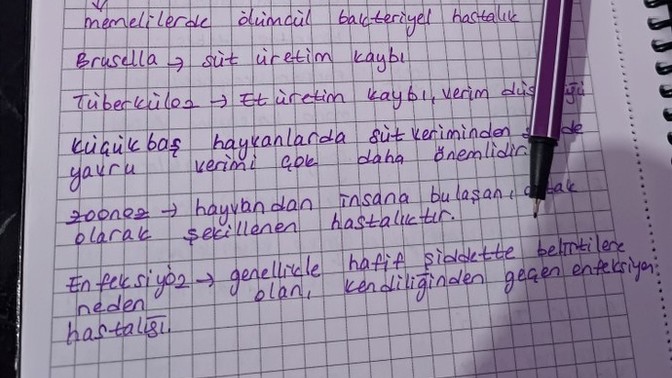 memelilerde ölümcül bakteriyel hastalık
Brusella → süt üretim kaybı
Tüberküloz → Et üretim kaybı, verim
küçükbaş hayvanlarda süt veriminden
yavru verimi çok daha önemlidir
zoonoz → hayvandan insana bulaşan,
olarak şekillenen hastalıktır.
Enfeksiyöz → genellikle hafif şiddette belirtilere
neden olan, kendiliğinden geçen enfeksiyon
hastalığı.